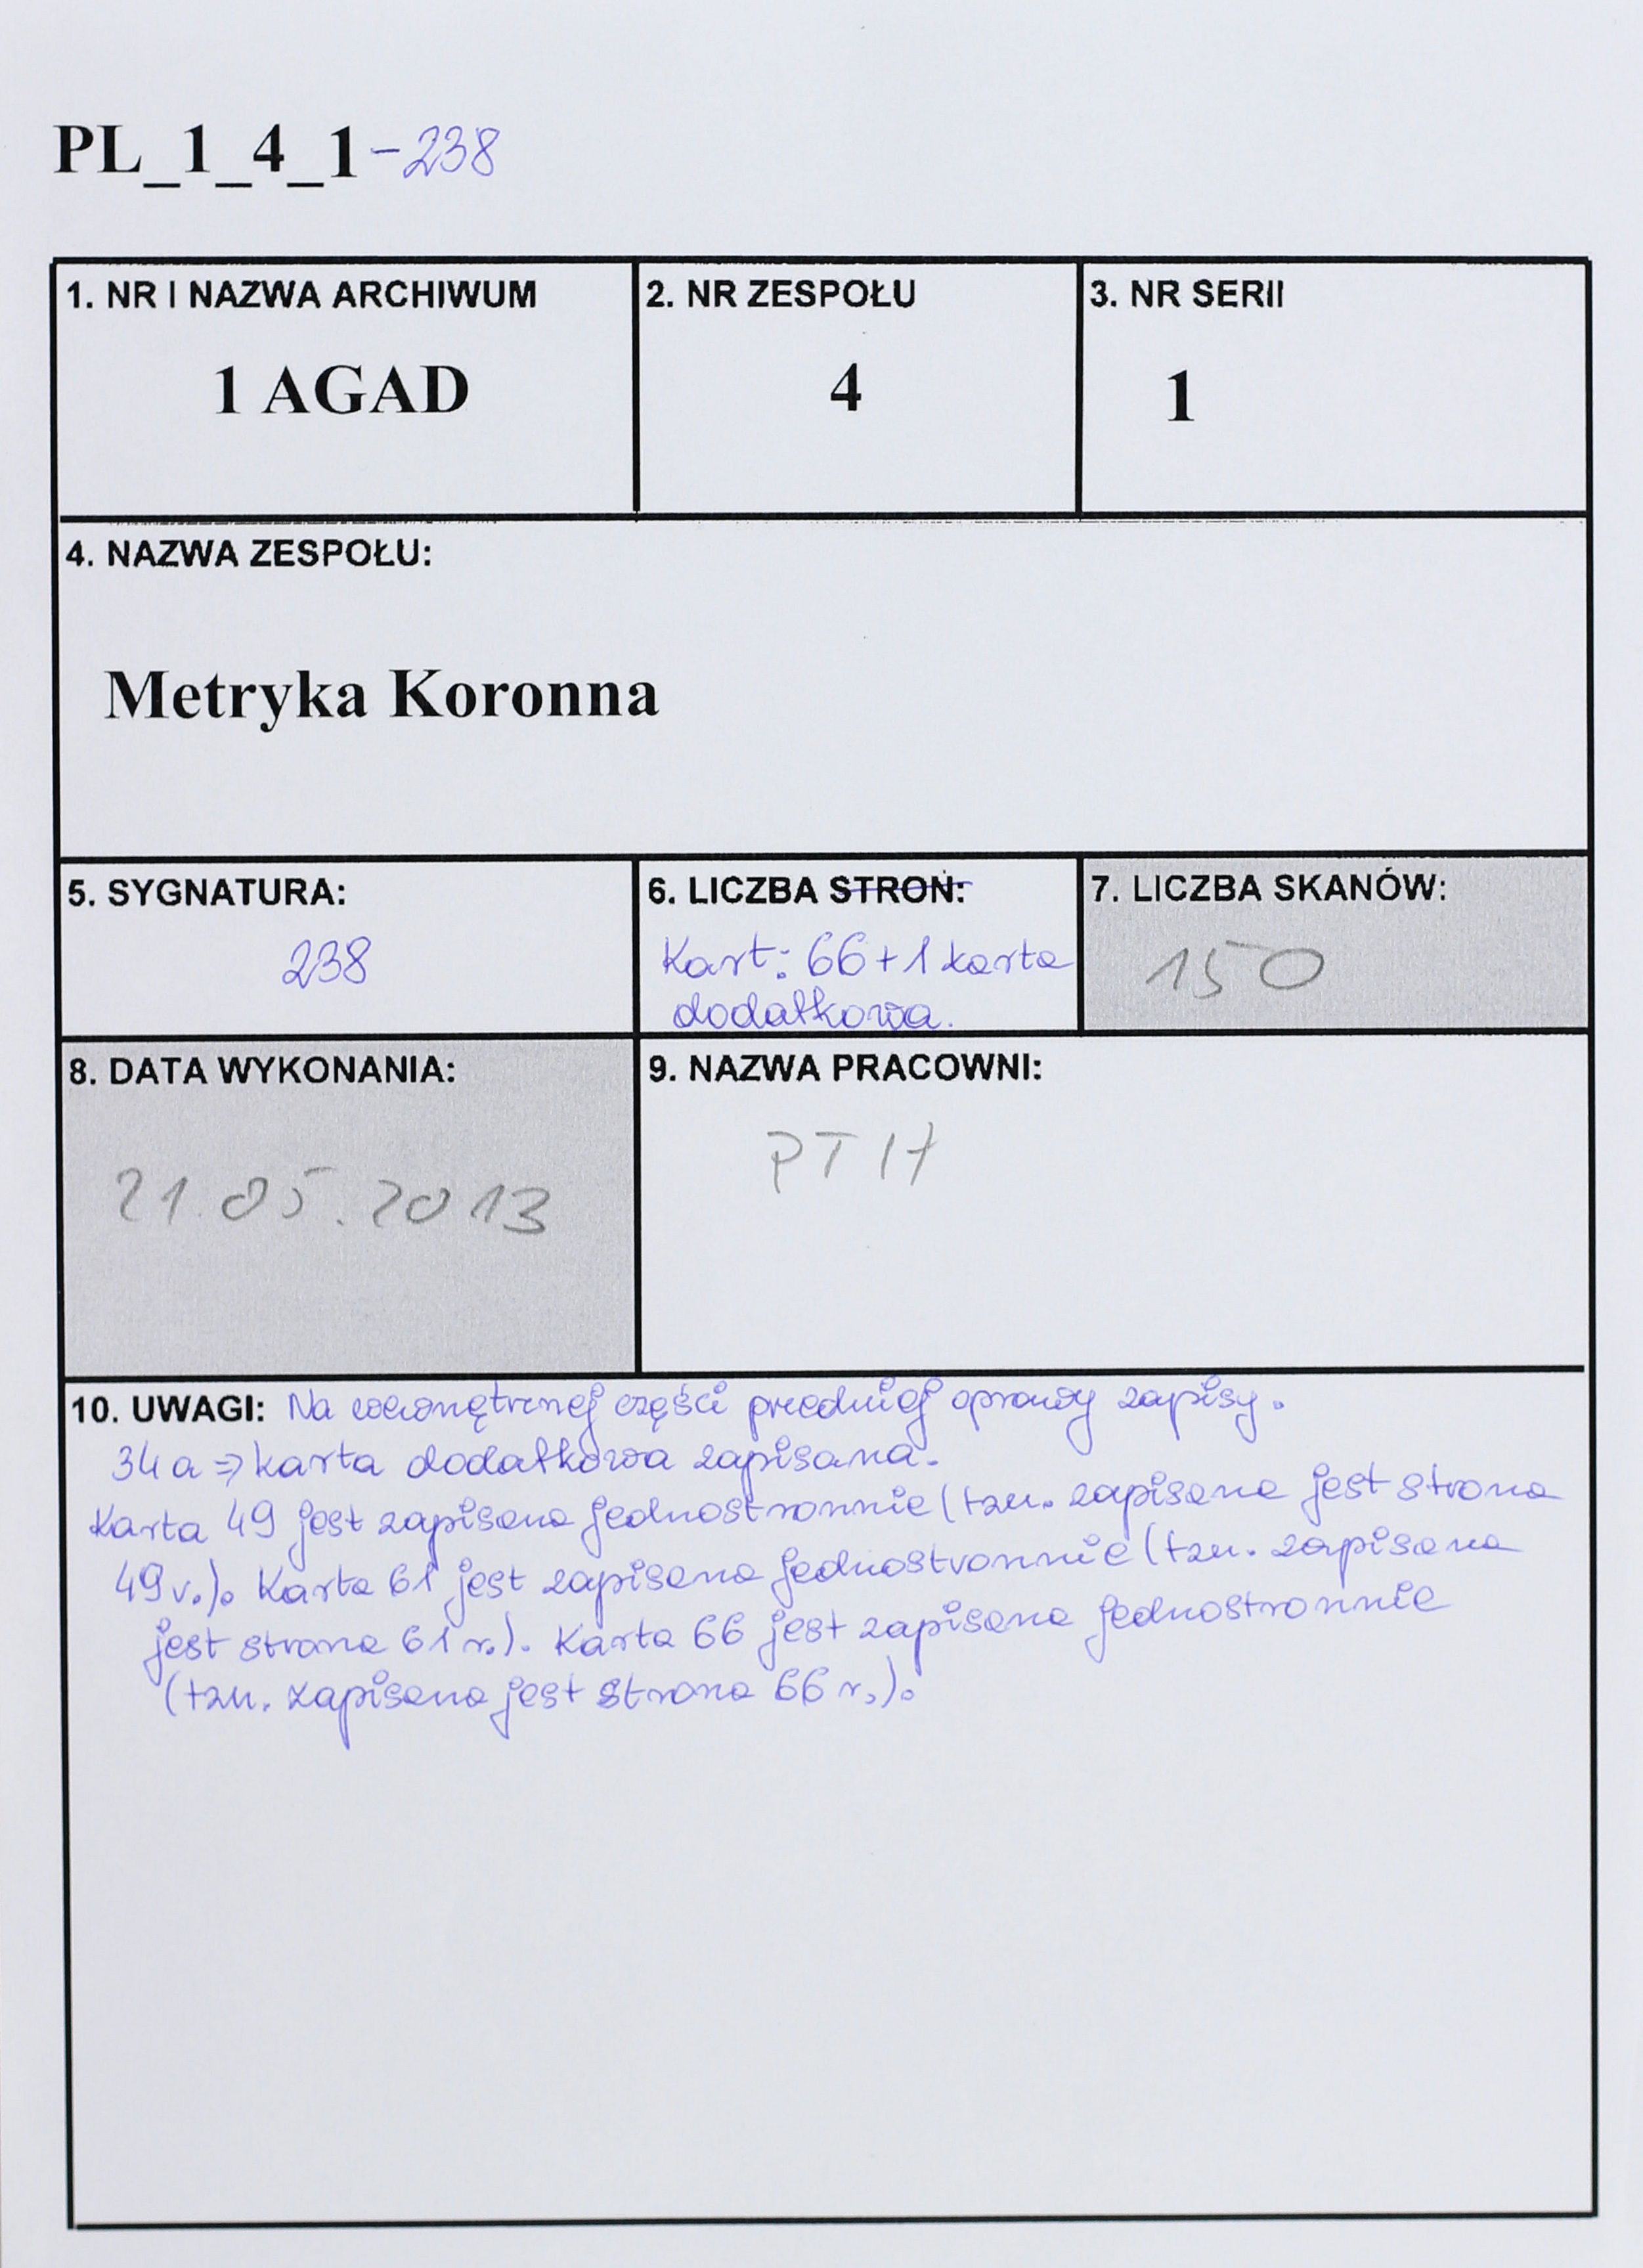 PL_1_4_1-238
1. NR I NAZWA ARCHIWUM
1 AGAD
2. NR ZESPOŁU
4
3. NR SERII
1
4. NAZWA ZESPOŁU:
Metryka Koronna
5. SYGNATURA:
238
6. LICZBA STRON:
Kart: 66+1 karta
dodatkowa.
7. LICZBA SKANÓW:
150
8. DATA WYKONANIA:
21.05.2013
9. NAZWA PRACOWNI:
PT
10. UWAGI: Na wewnętrznej części przedniej oprawy zapisy.
34a => karta dodatkowa zapisana.
Karta 49 jest zapisana jednostronnie (tzn. zapisana jest strona
49v.). Karta 61 jest zapisana jednostronnie (tzn. zapisana
jest strona 61r.). Karta 66 jest zapisana jednostronnie
(tzn. zapisana jest strona 66r.).